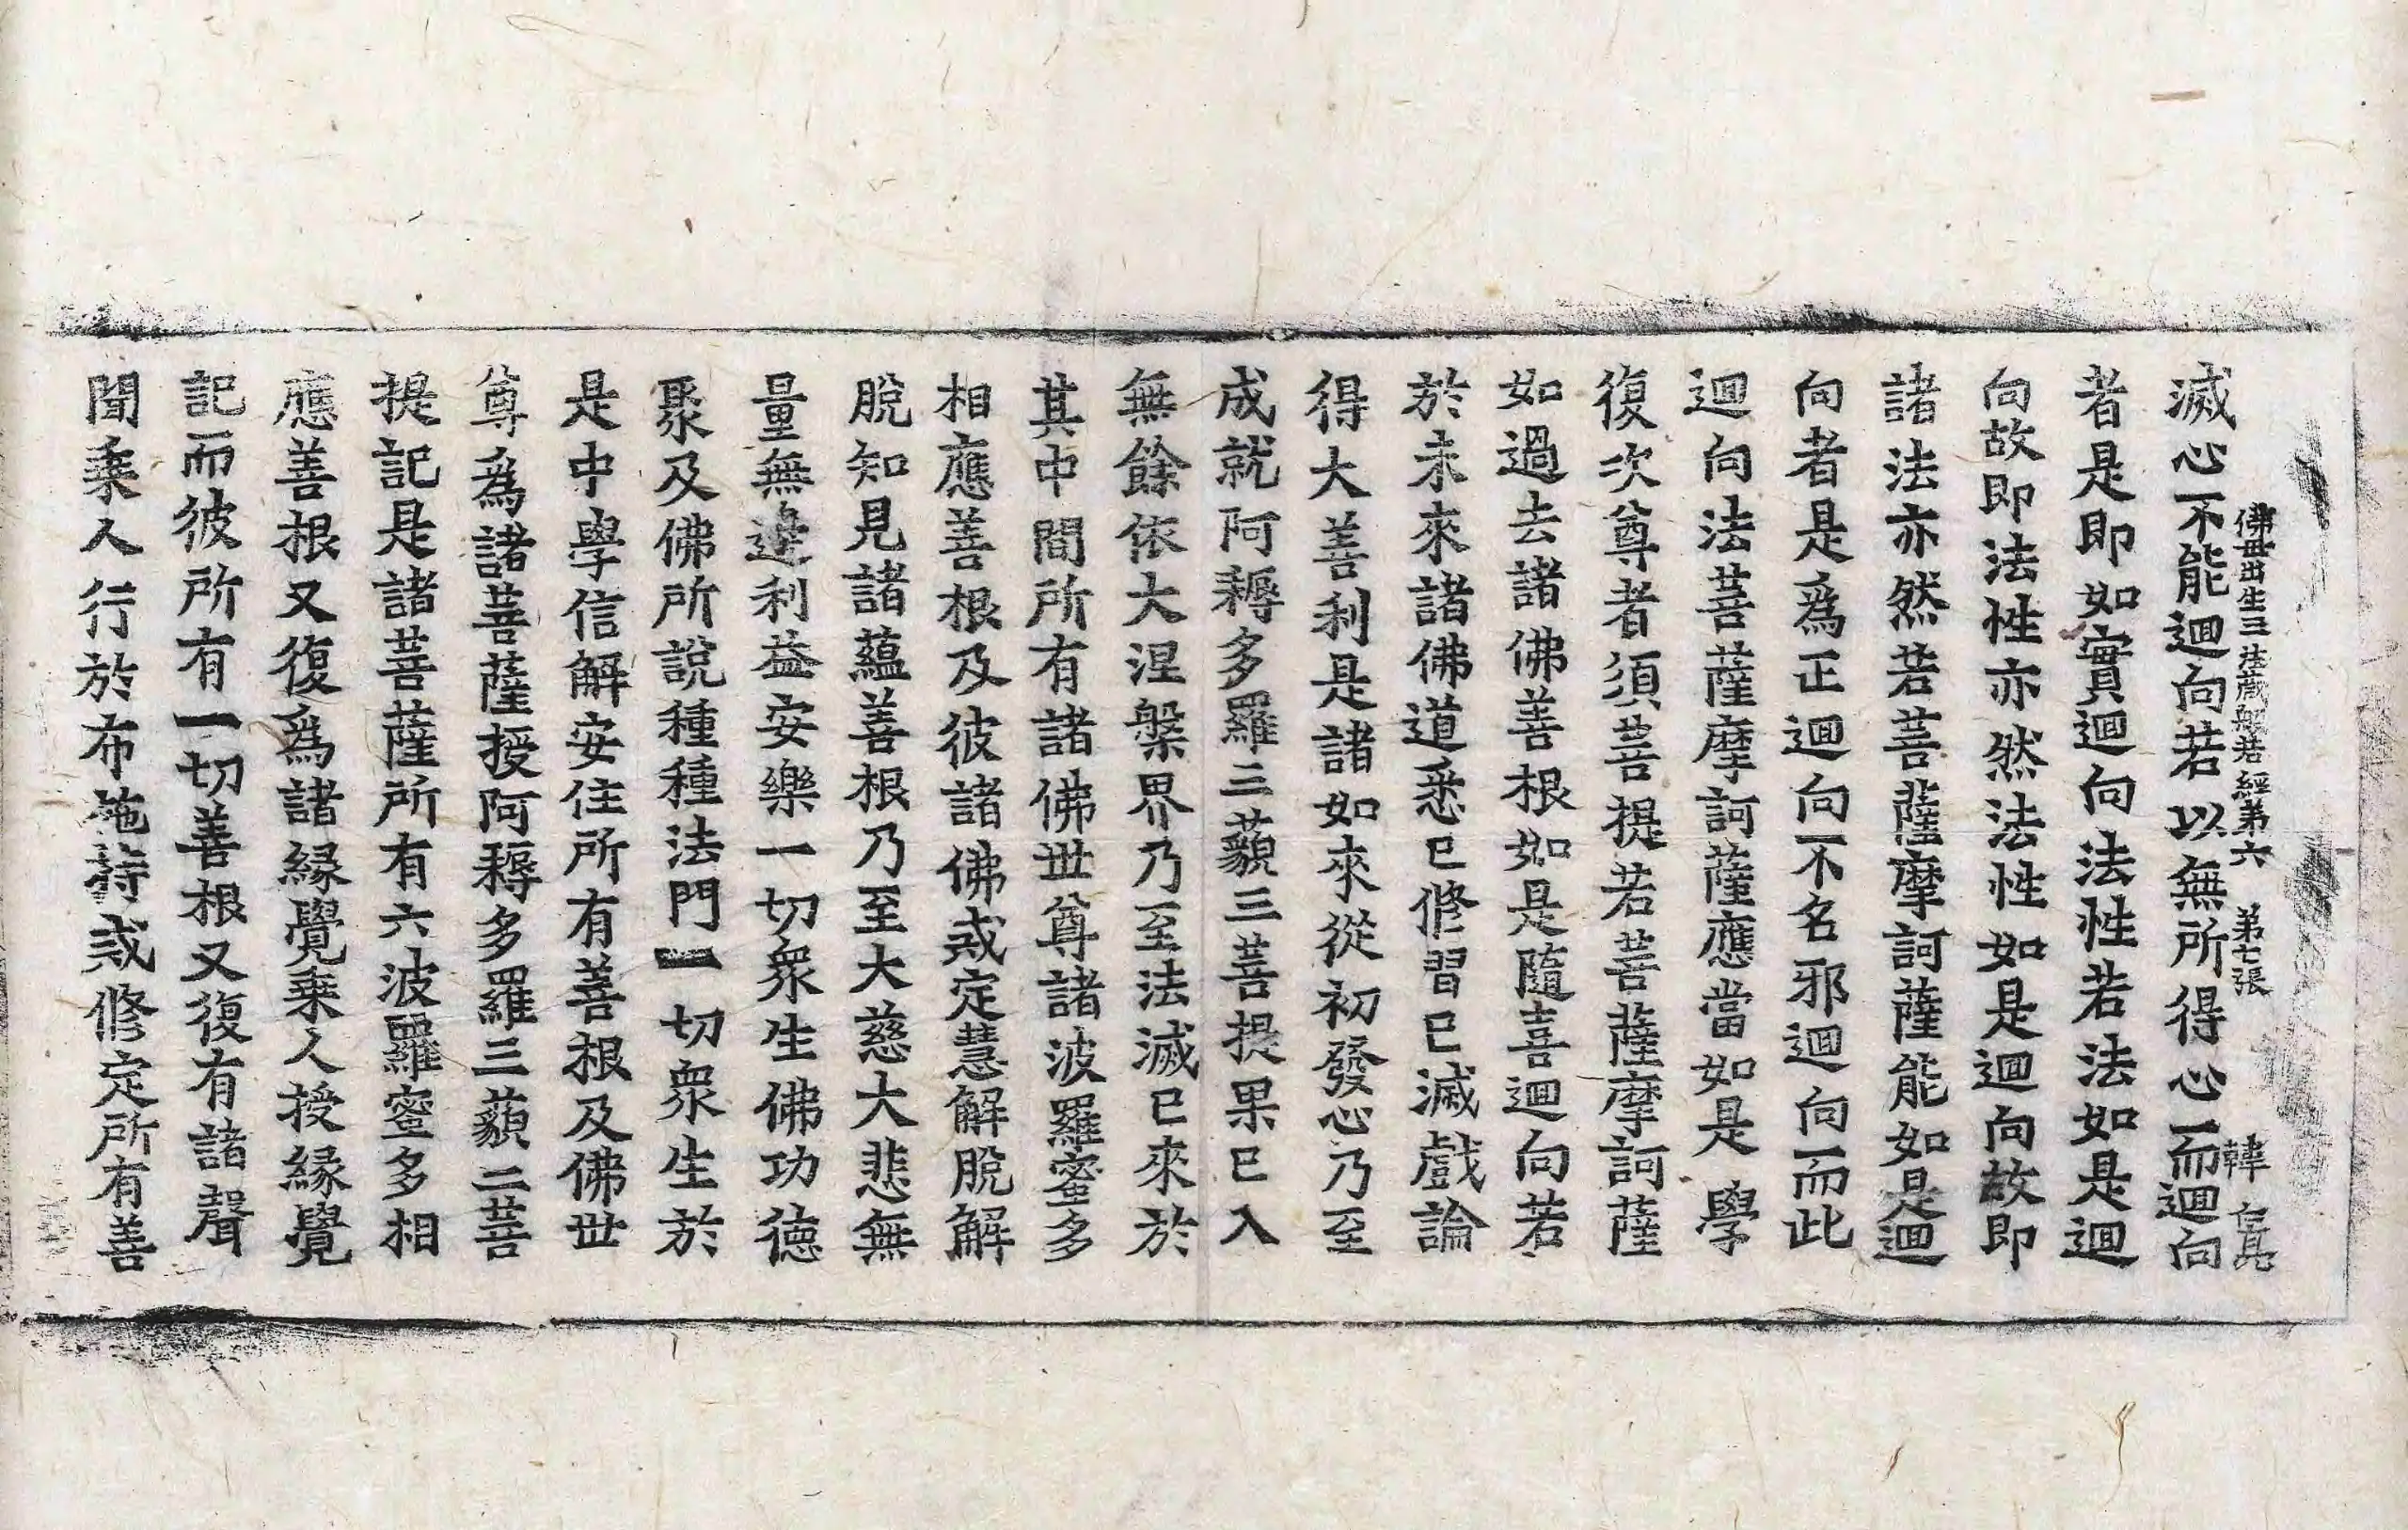 佛母出生三法蔵般若經第六 第七張 韓
滅心不能迴向若以無所得心而迴向
者是即如實迴向法性若法如是迴
向故即法性亦然法性如是迴向故即
諸法亦然若菩薩摩訶薩能如是迴
向者是爲正迴向不名邪迴向而此
迴向法菩薩摩訶薩應當如是學
復次尊者須菩提若菩薩摩訶薩
如過去諸佛善根如是隨喜迴向若
於未來諸佛道悉已修習已滅戲論
得大善利是諸如來從初發心乃至
成就阿耨多羅三藐三菩提果已入
無餘依大涅槃界乃至法滅已來於
其中間所有諸佛世尊諸波羅蜜多
相應善根及彼諸佛戒定慧解脫解
脫知見諸蘊善根乃至大慈大悲無
量無邊利益安樂一切衆生佛功德
聚及佛所說種種法門一切衆生於
是中學信解安住所有善根及佛世
尊爲諸菩薩授阿耨多羅三藐二菩
提記是諸菩薩所有六波羅蜜多相
應善根又復爲諸縁覺乗人授縁覺
記而彼所有一切善根又復有諸聲
聞乗人行於布施持戒修定所有善